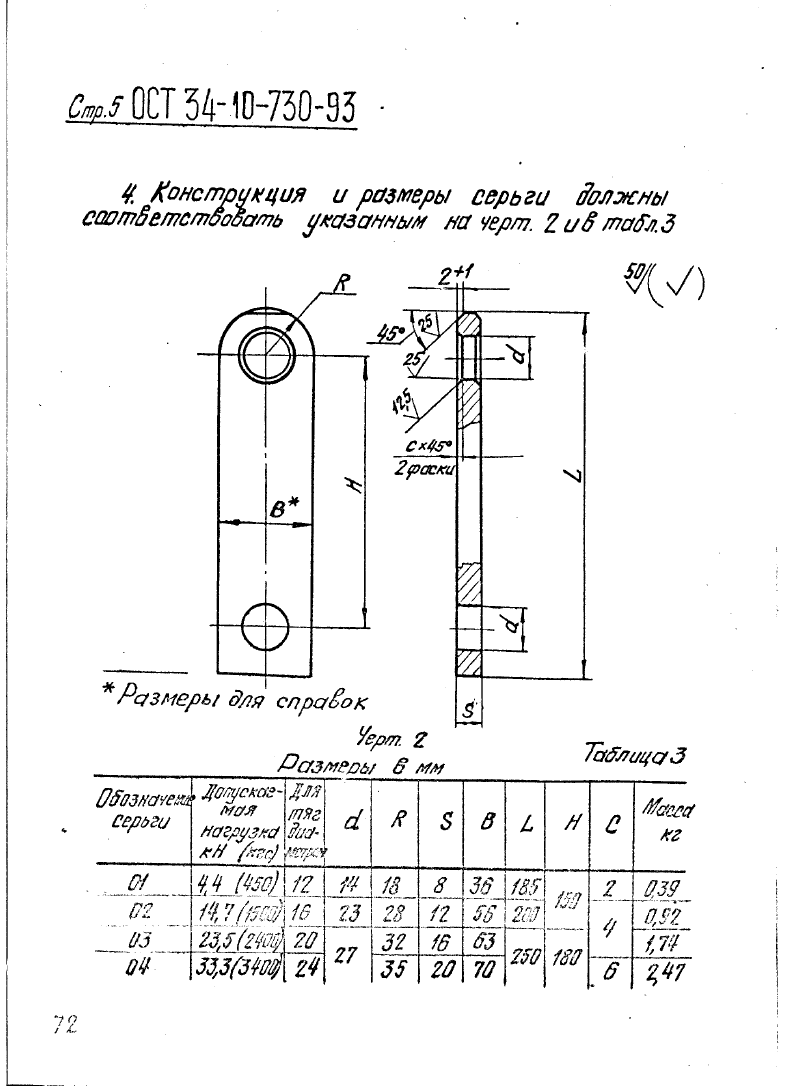 Стр.5 ОСТ 34-10-730-93
4. Конструкция и размеры серьги должны
соответствовать указанным на черт. 2 и в табл.3
R
2+1
50/(√)
45°
25
d
25
12,5
c×45°
2 фаски
H
L
B*
d
S
* Размеры для справок
Черт. 2
Размеры в мм Таблица 3
Обозначение серьги | Допускаемая нагрузка кН (кгс) | Для тяг диаметром | d | R | S | B | L | H | C | Масса кг
01 | 4,4 (450) | 12 | 14 | 18 | 8 | 36 | 185 | 150 | 2 | 0,39
02 | 14,7 (1500) | 16 | 23 | 28 | 12 | 56 | 200 | 4 | 0,92
03 | 23,5 (2400) | 20 | 27 | 32 | 16 | 63 | 250 | 180 | 1,74
04 | 33,3 (3400) | 24 | 35 | 20 | 70 | 6 | 2,47
72